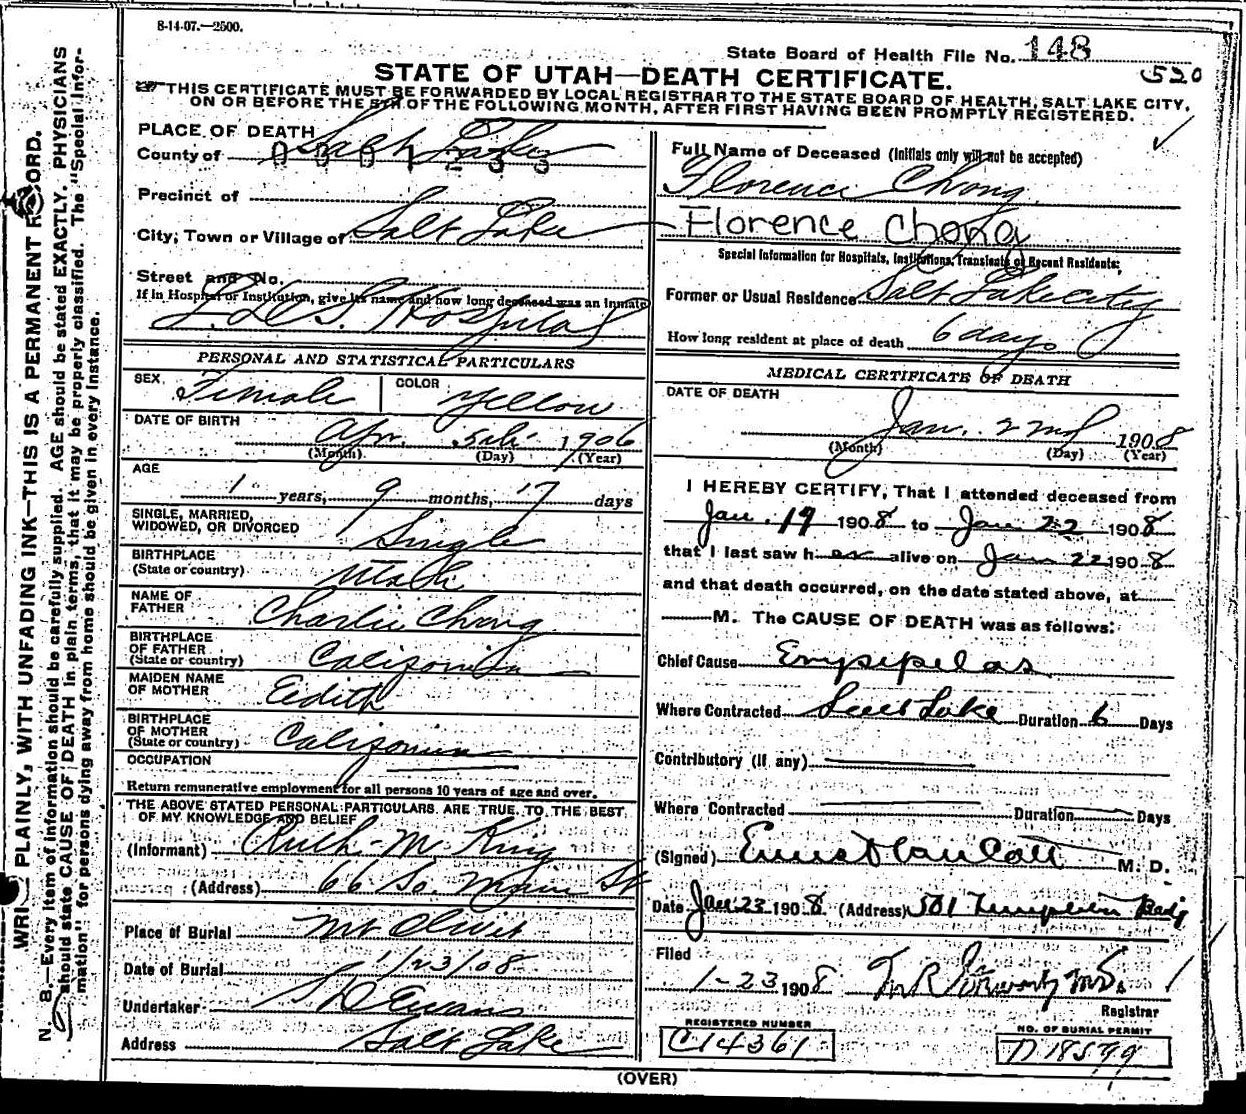 8-14-07.—2500.
State Board of Health File No. 148
520
STATE OF UTAH—DEATH CERTIFICATE.
THIS CERTIFICATE MUST BE FORWARDED BY LOCAL REGISTRAR TO THE STATE BOARD OF HEALTH, SALT LAKE CITY,
ON OR BEFORE THE 5TH OF THE FOLLOWING MONTH, AFTER FIRST HAVING BEEN PROMPTLY REGISTERED.
WRITE PLAINLY, WITH UNFADING INK—THIS IS A PERMANENT RECORD.
N. B.—Every item of information should be carefully supplied. AGE should be stated EXACTLY. PHYSICIANS
should state CAUSE OF DEATH in plain terms, that it may be properly classified. The "Special Infor-
mation" for persons dying away from home should be given in every instance.
PLACE OF DEATH
County of Salt Lake
0001233
Precinct of
City, Town or Village of Salt Lake
Street and No.
If in Hospital or Institution, give its name and how long deceased was an inmate
L.D.S. Hospital
PERSONAL AND STATISTICAL PARTICULARS
SEX Female COLOR Yellow
DATE OF BIRTH
Apr. 5th 1906
(Month) (Day) (Year)
AGE
1 years, 9 months, 17 days
SINGLE, MARRIED,
WIDOWED, OR DIVORCED Single
BIRTHPLACE
(State or country) Utah
NAME OF
FATHER Charlie Chong
BIRTHPLACE
OF FATHER
(State or country) California
MAIDEN NAME
OF MOTHER Eedith
BIRTHPLACE
OF MOTHER
(State or country) California
OCCUPATION
Return remunerative employment for all persons 10 years of age and over.
THE ABOVE STATED PERSONAL PARTICULARS ARE TRUE TO THE BEST
OF MY KNOWLEDGE AND BELIEF
(Informant) Ruth M King
(Address) 66 So. Main St
Place of Burial Mt Olivet
Date of Burial 1/23/08
Undertaker S D Evans
Address Salt Lake
Full Name of Deceased (Initials only will not be accepted)
Florence Chong
Florence Chong
Special Information for Hospitals, Institutions, Transients or Recent Residents:
Former or Usual Residence Salt Lake City
How long resident at place of death 6 days
MEDICAL CERTIFICATE OF DEATH
DATE OF DEATH
Jan. 22nd 1908
(Month) (Day) (Year)
I HEREBY CERTIFY, That I attended deceased from
Jan. 19 1908 to Jan 22 1908
that I last saw her alive on Jan 22 1908
and that death occurred, on the date stated above, at
M. The CAUSE OF DEATH was as follows:
Chief Cause Erysipelas
Where Contracted Salt Lake Duration 6 Days
Contributory (if any)
Where Contracted Duration Days
(Signed) Ernest Van Cott M. D.
Date Jan 23 1908 (Address) 501 Templeton Bldg
Filed
1-23 1908
Registrar
REGISTERED NUMBER
C14361
NO. OF BURIAL PERMIT
D 18599
(OVER)